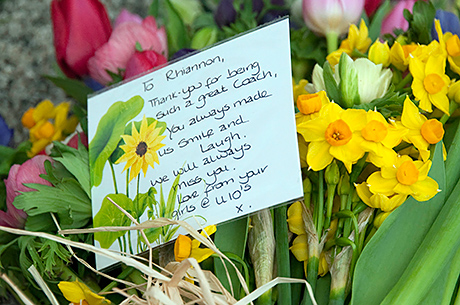 To Rhiannon,
Thank-you for being
such a great Coach,
You always made
us smile and
Laugh.
we will always
miss you.
Love from your
girls @ U10's
x.